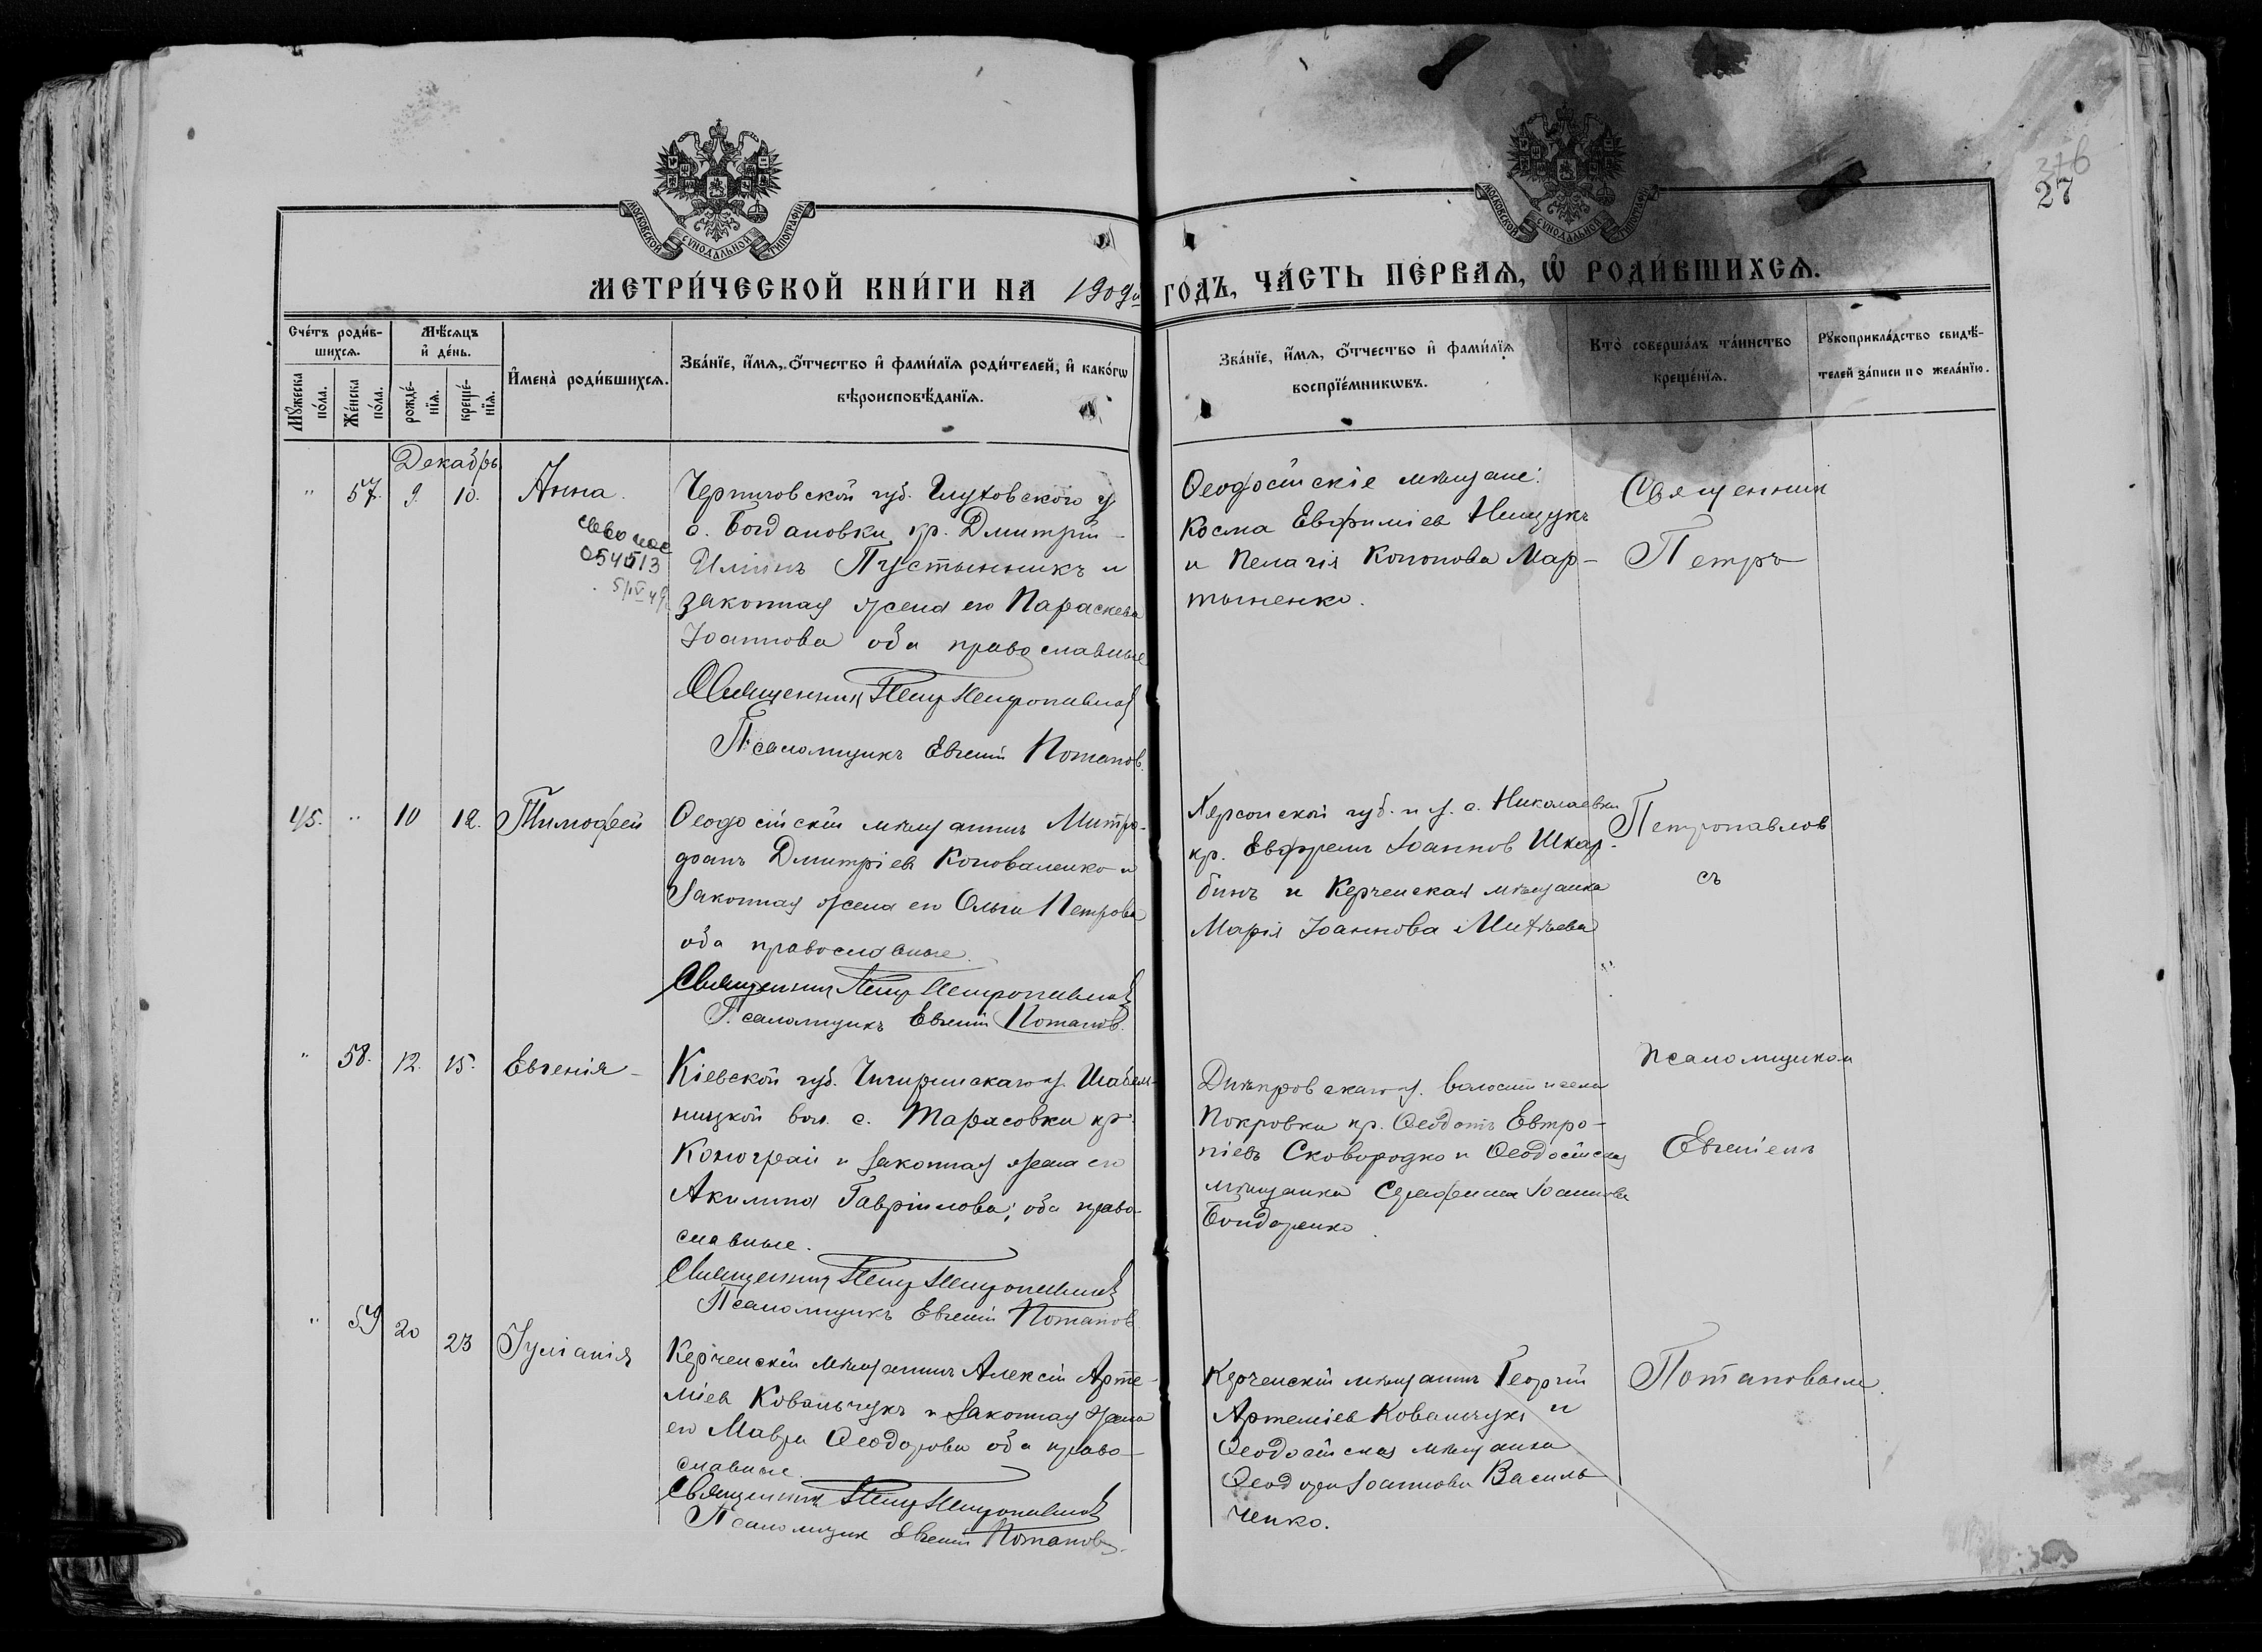 376
27
МОСКОВСКОЙ СУНОДАЛЬНОЙ ТИПОГРАФІИ
МОСКОВСКОЙ СУНОДАЛЬНОЙ ТИПОГРАФІИ
МЕТРИ́ЧЕСКОЙ КНИ́ГИ НА 1909й ГОДЪ, ЧА́СТЬ ПЕ́РВАЯ, Ѡ РОДИ́ВШИХСЯ.
Сче́тъ роди́в-
шихся.
Мꙋжеска
по́ла.
Же́нска
по́ла.
Мѣ́сяцъ
и҆ де́нь.
рожде́-
нїя.
креще́-
нїя.
И҆мена̀ роди́вшихся.
Зва́нїе, и҆́мя, ѻ҆́тчество и҆ фами́лїя роди́телей, и҆ како́гѡ
вѣроисповѣ́данїя.
Зва́нїе, и҆́мя, ѻ҆́тчество и҆ фами́лїя
воспрїе́мникѡвъ.
Кто̀ соверша́лъ та́инство
креще́нїя.
Рꙋкоприкла́дство свидѣ́-
телей за́писи по жела́нїю.
Декабрь
" 57. 9. 10. Анна.
054513
5/IV 49
Черниговской губ. Глуховского у.
с. Богдановки, кр. Дмитрій
Иліинъ Пустынникъ и
законная жена его Параскева
Іоаннова оба православные
Священникъ Петр Петропавлов
Псаломщикъ Евгеній Потапов.
Ѳеодосійскіе мѣщане:
Косма Евфиміев Нищукъ
и Пелагія Кононова Мар-
тыненко.
Священник
Петръ
45. " 10 12. Тимофей
Ѳеодосійскій мѣщанинъ Митро-
фанъ Дмитріев Коноваленко и
законная жена его Ольга Петрова
оба православные.
Священник Петр Петропавлов
Псаломщикъ Евгеній Потапов.
Херсонской губ. и у. с. Николаевки
кр. Евфрем Іоаннов Шкар-
бинъ и Керченская мѣщанка
Марія Іоаннова
Петропавлов
съ
" 58. 12. 15. Евгенія
Кіевской губ. Чигиринскаго у.
вол. с. Тарасовки кр.
и законная жена его
Акилина Гавріилова; оба право-
славные.
Священник Петр Петропавлов
Псаломщикъ Евгеній Потапов
Днѣпровскаго у. волости и села
Покровки кр. Ѳеодотъ Евтро-
піевъ Сковородко и Ѳеодосійская
мѣщанка Серафима Іоаннова
Бондаренко.
псаломщиком
Евгеніемъ
" 59 20 23 Іуліанія
Керченскій мѣщанинъ Алексій Арте-
міев Ковальчукъ и законная жена
его Мавра Ѳеодорова оба право-
славные.
Священник Петр Петропавлов
Псаломщик Евгеній Потапов.
Керченскій мѣщанинъ Георгій
Артеміев Ковальчукъ и
Ѳеодосійская мѣщанка
Ѳеодора Іоаннова Василь-
ченко.
Потаповым.